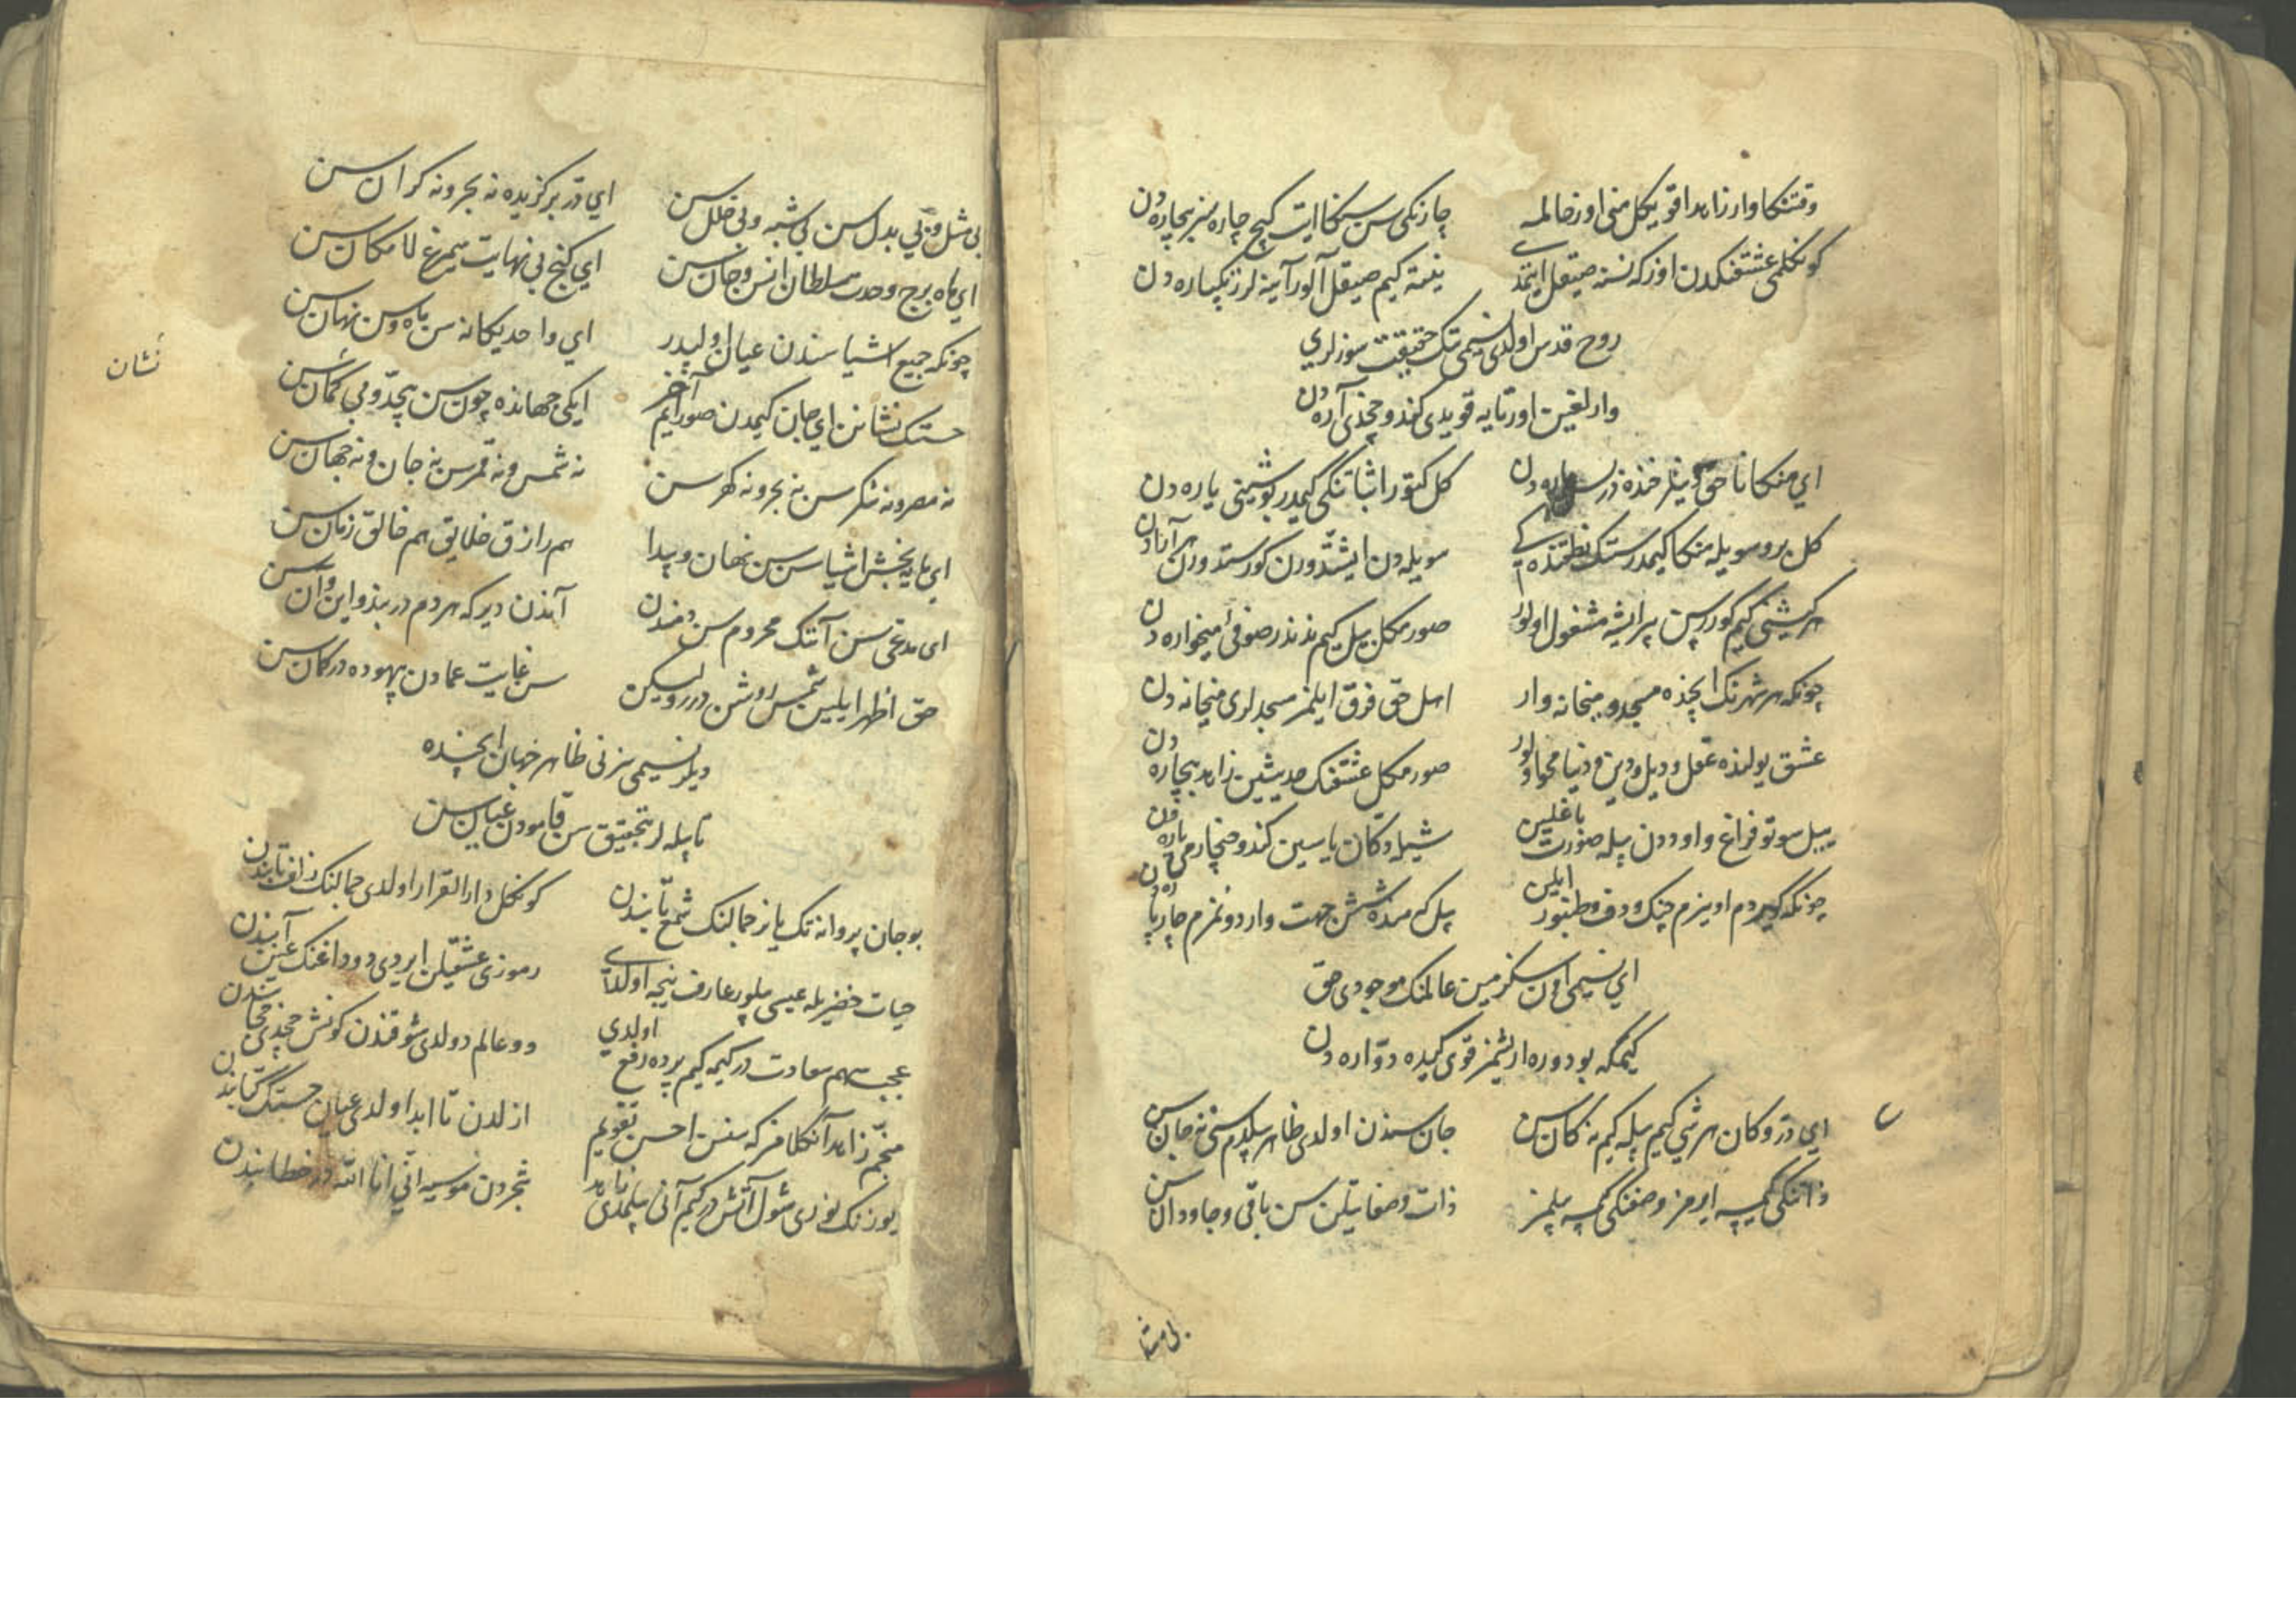 وقتنکا وار زاهدا قویکل منی اوز حالمه
چاره‌نکی سن سنکا ایت کچ چاره سز بیچاره دن
کونکلمی عشقنکدن اوزکه نسنه صیقل ایتمدی
نیته کیم صیقل آلور آینه لر زنکپاره دن
روح قدس اولدی نسیمی تک حقیقت سوزلری
وارلغین اورتایه قویدی کندو چخدی آره دن
ای منکا ناحق دینلر خنده در
کل کتور اثباتنکی کیمدر بو شیئی یاره دن
کل برو سویله منکا کیمدر سنک نطقنده کی
سویله دن ایشیددورن کورسدورن هر آراده دن
هر کیشی کیم کوررسن بیر ایشه مشغول اولور
صورمکل بیل کیم ندندر صوفی میخواره دن
چونکه هر شهرنک ایچنده مسجد و میخانه وار
اهل حق فرق ایلمز مسجدلری میخانه دن
عشق یولنده عقل و دیل و دین و دنیا محو اولور
صورمکل عشقنک حدیثین زاهد بیچاره دن
بیل سوتو فراغ و اوددن بیله صورت باغلین
شیله دکان یاسین کندو چخار می پاره دن
چونکه کیردم اوینرم چنک و دف و طنبور ایلن
بیل که مده شش جهت وار دونمزم چارپاره دن
ای نسیمی اون سکز مین عالمنک موجودی حق
کیمکه بو دوره ایرشمز قوی کیده دواره دن
ای در و کان هر شی کیم بیله کیم نه کان سن
جان سندن اولدی ظاهر بیلدم سنی نه جان سن
ذاتنکی کیمسه ایرمز وصفنکی کیمسه بیلمز
ذات و صفاتیلن سن باقی و جاودان سن
بی مثل
بی مثل و بی بدل سن بی شبه و بی خلل سن
ای در برکزیده نه بحر و نه کران سن
ای ماه برج وحدت سلطان انس و جان سن
ای کنج بی نهایت سیمرغ لامکان سن
چونکه جمیع اشیا سندن عیان اولیدر
ای واحد یکانه سن ماه و سن نهان سن
حسنک نشانن ای جان کیمدن صورایم آخر
ایکی جهانده چون سن بیحد و بی کمان سن
نشان
نه مصر و نه شکر سن نه بحر و نه کهر سن
نه شمس و نه قمر سن نه جان و نه جهان سن
ای مایه بخش اشیا سن سن نهان و پیدا
هم رازق خلایق هم خالق زمان سن
ای مدعی سن آنک محروم سن دمندن
آندن دیر که هر دم در بند و این و آن سن
حق اظهر ایلین شمس روشن درر و لیکن
سن غایت عمادن بیهوده در کمان سن
دیلر نسیمی سزنی ظاهر جهان ایچنده
تا بیله لر بتحقیق سن قامودن عیان سن
بو جان پروانه تک یانر جمالنک شمع تابندن
کونکل دار القرار اولدی جمالنک زلف تابندن
حیات خضریله عیسی بیلور عارف نیجه اولدی
رموزی عشقیلن ایردی دوداغنک عین آبندن
عجب سهم سعادت در کیمه کیم پرده رفع اولدی
دو عالم دولدی شوقندن کونش چخدی حجابندن
منجم زاهد آنکلامز که سنسن احسن تقویم
ازلدن تا ابد اولدی عیان حسنک کتابندن
یوزنک نوری شول آتش در کیم آنی بیلمدی زاهد
شجردن موسیه انی انا الله در خطابندن